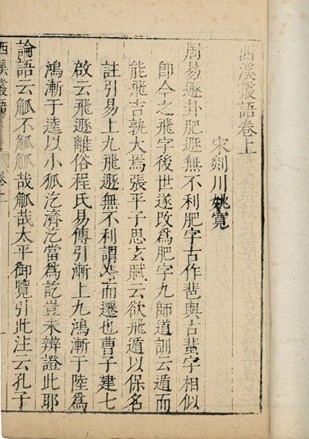 西溪叢語卷上
宋剡川姚寬
周易遯卦肥遯無不利肥字古作與古蜚字相似
即今之飛字後世遂改爲肥字九師道訓云遁而
能飛吉孰大焉張平子思玄賦云欲飛遁以保名
註引易上九飛遯無不利謂去而遷也曹子建七
啟云飛遯離俗程氏易傳引漸上九鴻漸于陸爲
鴻漸于逵以小狐汔濟汔當爲訖豈未辨證此耶
論語云觚不觚觚哉觚哉太平御覽引此注云孔子
西溪叢語 卷上